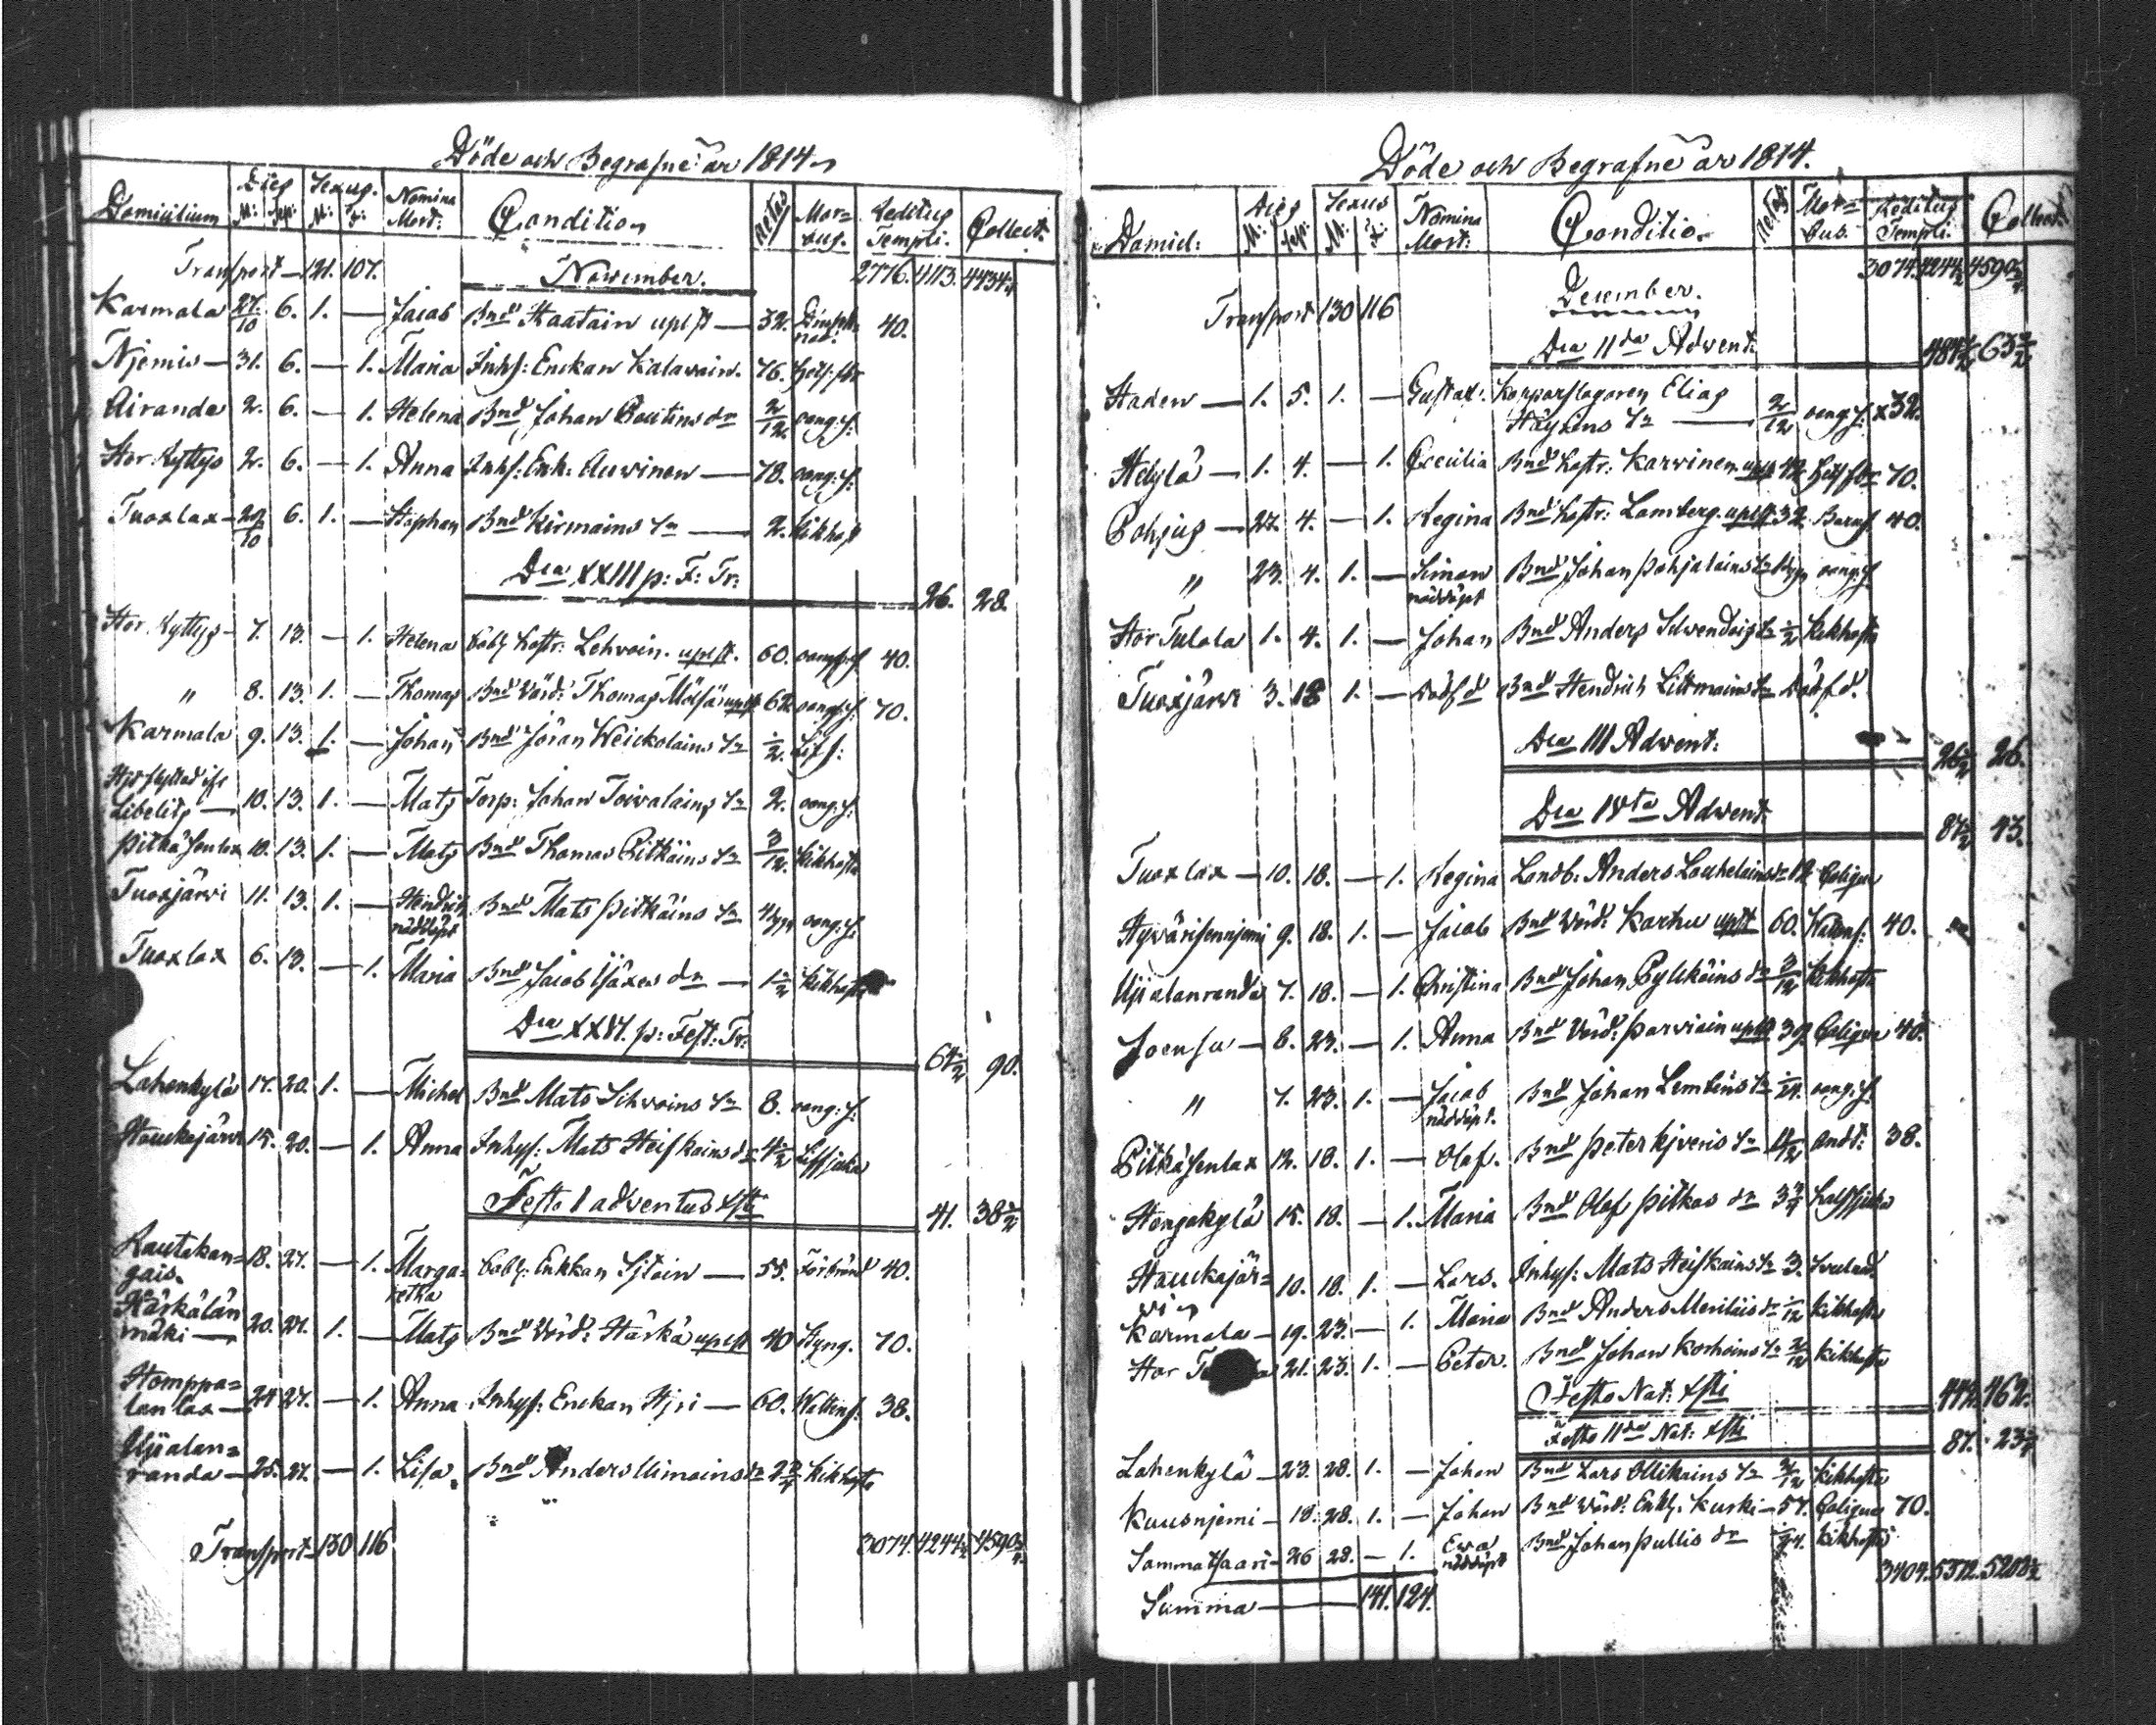 Döde och Begrafne år 1814
Domicilium Dies Sexus. Nomina Condition Aetas Mor= Reditus Collect.
M: Sep: M: F: Mort: bus. Templi.
Transport — 121. 107. November. 2776. 4113. 4434
Karmala 27/10 6. 1. — Jacob Bnd Haatain uplst — 32. 40.
Njemis — 31. 6. — 1. Maria Inhs: Enckan Kalavain. 76.
Airanda 2. 6. — 1. Helena Bnd Johan Poutins dr 2/12 oang: s:
Stor Kyttys 2. 6. — 1. Anna Inhs: Enk: Auvinen — 78. oang: s:
Tuoxlax — 29/10 6. 1. — Staphan Bnd Kirmains Sn — 2. Kikhost
Dca XXIII p: F: Tr: 26. 28.
Stor Kyttys — 7. 13. — 1. Helena hostr: Lehvoin. uplst. 60. 40.
" 8. 13. 1. — Thomas Bnd Värd: Thomas Mölsä uplst 62 oang: s: 70.
Karmala 9. 13. 1. — Johan Bnd Jöran Weickolains Sn 1/2.
Libelits — 10. 13. 1. — Mats Torp: Johan Toivalains Sn 2. oang: s:
Pitkäsenlax 10. 13. 1. — Mats Bnd Thomas Pitkäins Sn 3/12. Kikhosta
Tuoxjärvi 11. 13. 1. — Hendrich Bnd Mats Pitkäins Sn oang: s:
nöddöpt
Tuoxlax 6. 13. — 1. Maria Bnd Jacob Ijäxes dr — 1 1/2 Kikhosta
Dca XXVI. p: Fest: Tr: 64 1/2 90.
Lahenkylä 17. 20. 1. — Michel Bnd Mats Sihvoins Sn 8. oang: s:
Hauckajärvi 15. 20. — 1. Anna Inhys: Mats Heiskains dr 4 1/2
Festo 1 adventus Xsti 41. 38 1/2
Rautakan= 18. 27. — 1. Marga= Enkkan — 55. Förbränd 40.
gais. retha
Härkälän
mäki — 20. 27. 1. — Mats Bnd Värd: Härkä uplst 40 70.
Homppa=
lanlax — 24 27. — 1. Anna Inhys: Enckan Hjri — 60. Wattens: 38.
Ujialan=
randa — 25. 27. — 1. Lisa. Bnd Anders Uimains dr Kikhosta
Transport — 130 116 3074. 4244 1/2 4590
Döde och Begrafne år 1814.
Domicil: Dies Sexus Nomina Conditio. Aetas Mor= Reditus Collect:
M: Sep: M: F: Mort: bus. Templi.
3074. 4244 1/2 4590
Transport 130 116 December.
Dca IIda Advent: 63 1/2
Staden — 1. 5. 1. — Gustav: Kopparslagaren Elias
Häyrins Sn — 2/12 oang: s: x32.
Helylä — 1. 4. — 1. Cecilia Bnd hostr: Karvinen uplst 42 70.
Pohjus — 27. 4. — 1. Regina Bnd hostr: Lamberg. uplst 32 Barns. 40.
" 23. 4. 1. — Simon Bnd Johan Pohjalains Sn oang: s.
nöddöpt
Stor Tulola 1. 4. 1. — Johan Bnd Anders Silvendoins Sn 1/2 Kikhosta
Tuoxjärvi 3. 18 1. — Dödfd Bnd Hendrich Littmains Sn Dödfd.
Dca III Advent: 26 1/2 26.
Dca IVta Advent 87 1/2 43.
Tuoxlax — 10. 18. — 1. Regina Landb: Anders Louhelains dr 12 Colique
Hyvärisennjemi 9. 18. 1. — Jacob Bnd Värd: Karhu uplst 60. Wattens: 40.
Ujialanranda 7. 18. — 1. Christina Bnd Johan Pylckäins dr 3/12 Kikhosta
Joensu — 8. 23. — 1. Anna Bnd Värd: Parviain uplst 39 Colique 40.
" 7. 23. 1. — Jacob Bnd Johan Lembins Sn oang: s.
nöddöpt.
Pitkäsenlax 12. 18. 1. — Olof. Bnd Peter Sn Andt: 38.
Hongakylä 15. 18. — 1. Maria Bnd Olof Pitkas dr
Hauckajär= 10. 18. 1. — Lars. Inhys: Mats Heiskains Sn 3.
vi
Karmala — 19. 23. — 1. Maria Bnd Anders Meriläis dr Kikhosta
Stor 21. 23. 1. — Peter. Bnd Johan Korhoins Sn Kikhosta
Festo Nat: Xsti 442. 462.
Festo IIda Nat: Xsti 87. 23
Lahenkylä — 23. 28. 1. — Johan Bnd Lars Ollikains Sn Kikhosta
Kuusnjemi — 18. 28. 1. — Johan Bnd Värd: Kurki — 57. Colique 70.
Sammatsaari — 26 28. — 1. Ewa Bnd Johan Pullis dr Kikhosta
nöddöpt
3404. 5372. 5208 1/2
Summa — 141. 124.